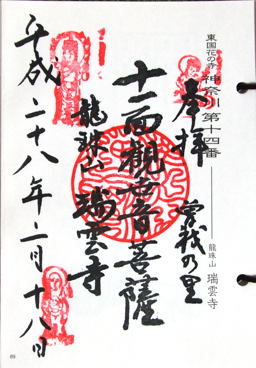 東国花の寺 神奈川第十四番 龍珠山 瑞雲寺
奉拝 曽我の里
十一面觀世音菩薩
龍珠山 瑞雲寺
平成二十八年二月十八日